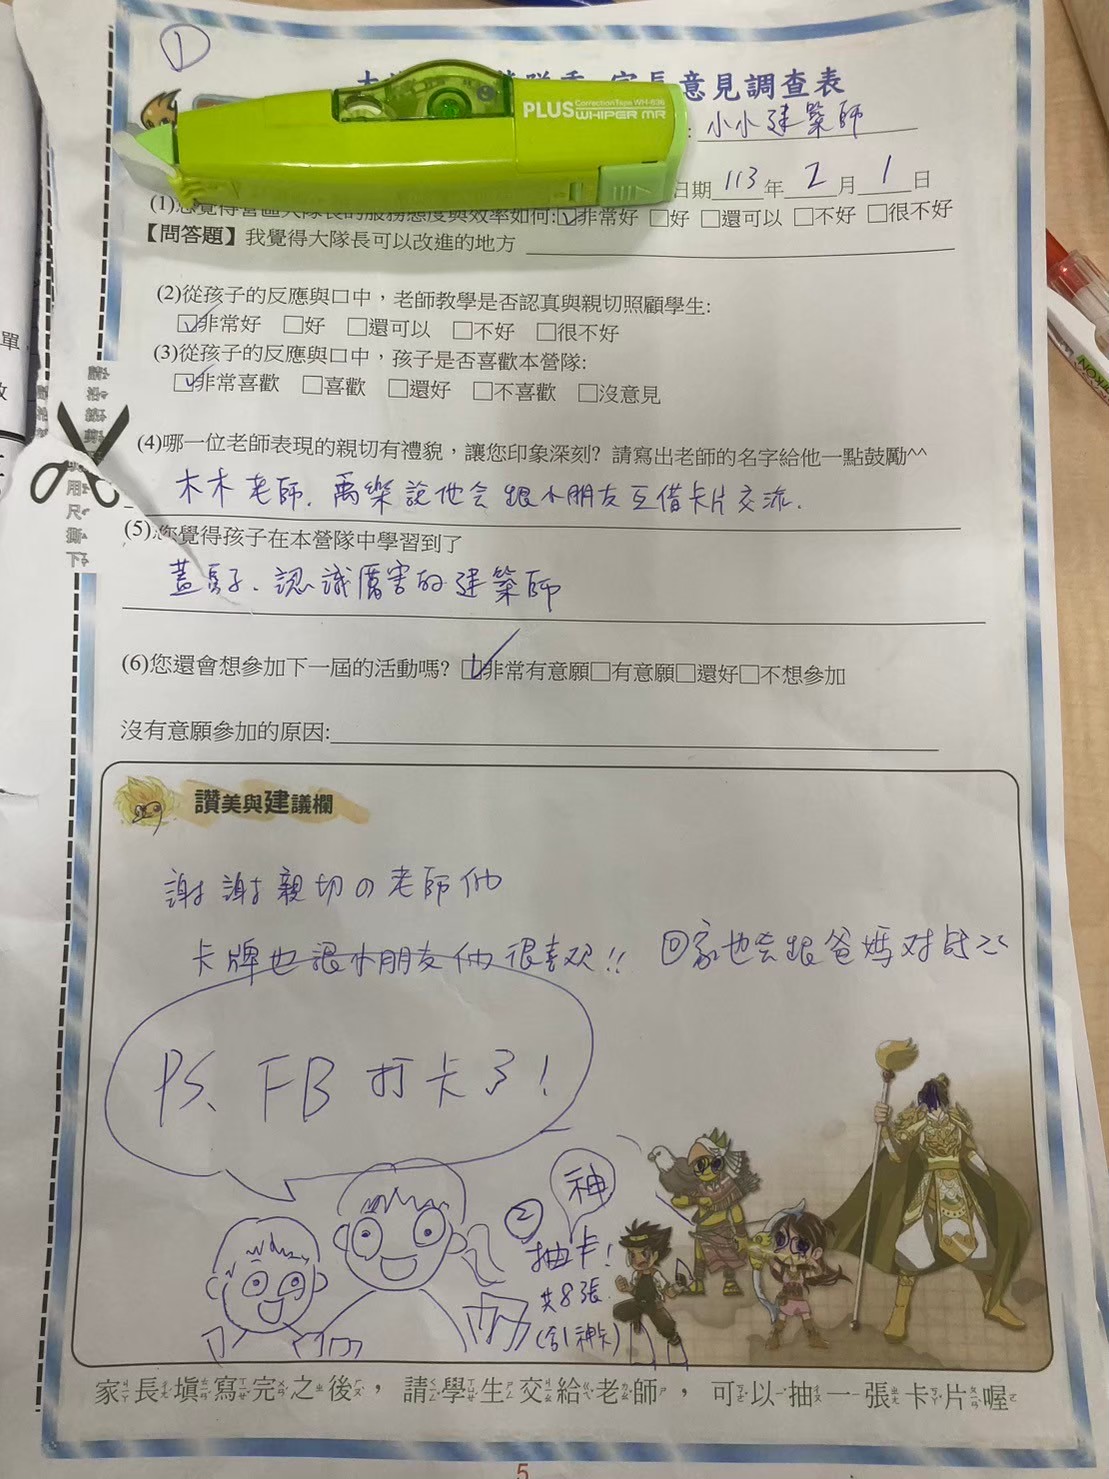 ①
家長意見調查表
PLUS CorrectionTape WH-636
WHIPER MR
: 小小建築師
日期 113 年 2 月 1 日
(1)您覺得營區大隊長的服務態度與效率如何:☑非常好 □好 □還可以 □不好 □很不好
【問答題】我覺得大隊長可以改進的地方
(2)從孩子的反應與口中，老師教學是否認真與親切照顧學生:
☑非常好 □好 □還可以 □不好 □很不好
(3)從孩子的反應與口中，孩子是否喜歡本營隊:
☑非常喜歡 □喜歡 □還好 □不喜歡 □沒意見
(4)哪一位老師表現的親切有禮貌，讓您印象深刻? 請寫出老師的名字給他一點鼓勵^^
木木老師. 禹樂說他会跟小朋友互借卡片交流.
(5)您覺得孩子在本營隊中學習到了
蓋房子. 認識厲害的建築師
(6)您還會想參加下一屆的活動嗎? ☑非常有意願□有意願□還好□不想參加
沒有意願參加的原因:
讚美與建議欄
謝謝親切の老師们
卡牌也讓小朋友们很喜欢!! 回家也会跟爸媽对战
PS. FB 打卡了!
神
②
抽卡!
共8張
(含1神卡)
家長填寫完之後，請學生交給老師，可以抽一張卡片喔
5